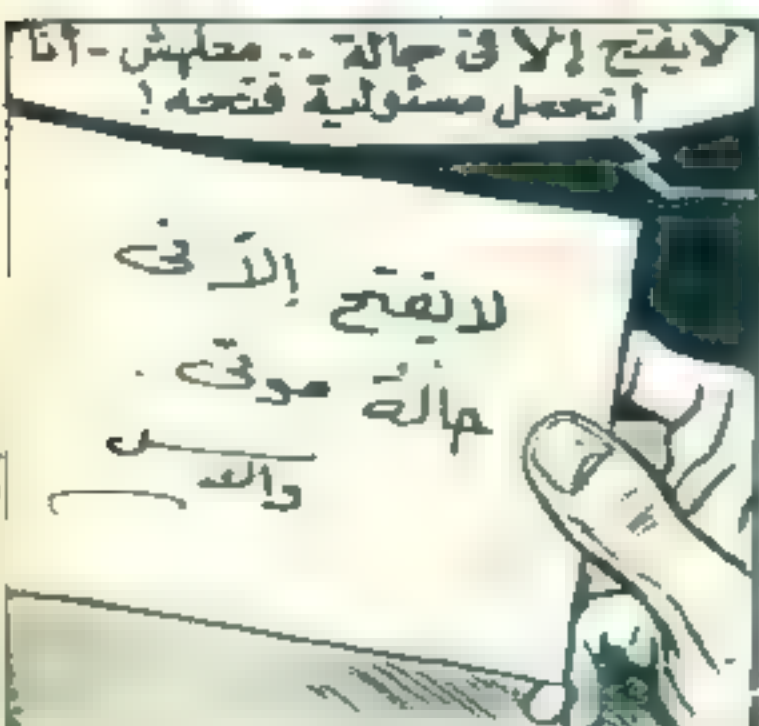 لا يفتح إلا فى حالة .. معلهش - أنا
اتحمل مسئولية فتحه !
لا يفتح إلا فى
حالة موتى .
والد